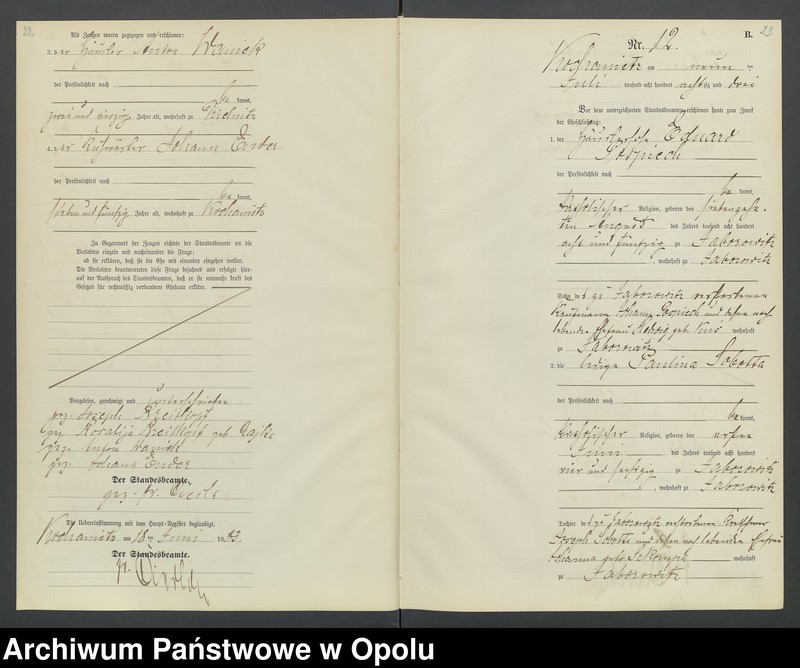 22.
Als Zeugen waren zugezogen und erschienen:
3. der Häusler Anton Wanick
der Persönlichkeit nach
be kannt,
zwei und vierzig Jahre alt, wohnhaft zu
4. der Johann Ender
der Persönlichkeit nach
be kannt,
sieben und fünfzig Jahre alt, wohnhaft zu Kochanietz
In Gegenwart der Zeugen richtete der Standesbeamte an die
Verlobten einzeln und nacheinander die Frage:
ob sie erklären, daß sie die Ehe mit einander eingehen wollen.
Die Verlobten beantworteten diese Frage bejahend und erfolgte hier-
auf der Ausspruch des Standesbeamten, daß er sie nunmehr kraft des
Gesetzes für rechtmäßig verbundene Eheleute erkläre.
Vorgelesen, genehmigt und unterschrieben
gez. Joseph
gez. Rosalie geb.
gez. Anton Wanick
gez. Johann Ender
Der Standesbeamte,
gez.
Die Uebereinstimmung mit dem Haupt-Register beglaubigt.
Kochanietz am 18ten Juni 1883.
Der Standesbeamte.
23
B.
Nr. 12.
Kochanietz am neun ten
Juli tausend acht hundert achtzig und drei
Vor dem unterzeichneten Standesbeamten erschienen heute zum Zweck
der Eheschließung:
1. der Häuslersohn Eduard
Pospiech
der Persönlichkeit nach
be kannt,
katholischer Religion, geboren den siebenzehn-
ten August des Jahres tausend acht hundert
acht und fünfzig zu Jaborowitz
, wohnhaft zu Jaborowitz
Sohn des zu Jaborowitz verstorbenen
Kaufmann Johann Pospiech und dessen noch
lebenden Ehefrau Hedwig geb. wohnhaft
zu Jaborowitz
2. die ledige Paulina Sobotta
der Persönlichkeit nach
be kannt,
katholischer Religion, geboren den ersten
Juni des Jahres tausend acht hundert
vier und sechzig zu Jaborowitz
, wohnhaft zu Jaborowitz
Tochter des zu Jaborowitz verstorbenen
Joseph Sobotta und dessen noch lebenden Ehefrau
Johanna geb. wohnhaft
zu Jaborowitz
Archiwum Państwowe w Opolu